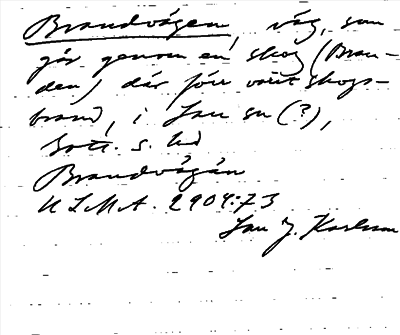 Brandvägen, väg, som
går genom en skog (Bran-
den) där förr varit skogs-
brand, i Lau sn (?),
Gotl. s. hd
Brandvägän
ULMA. 2904:73
Lau J. Karlsson